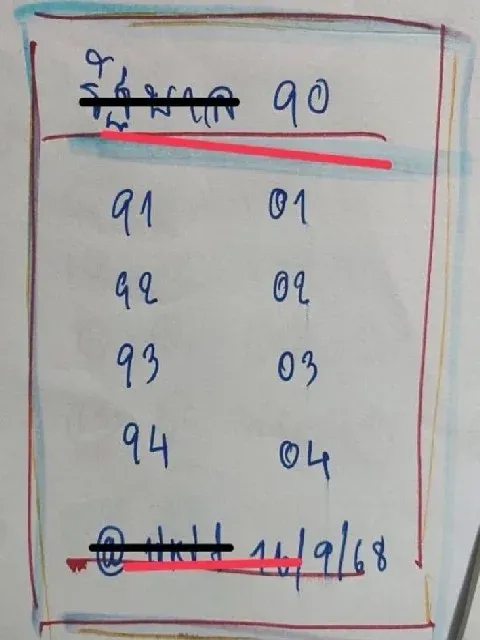 รัฐบาล 90
91 01
92 02
93 03
94 04
16/9/68